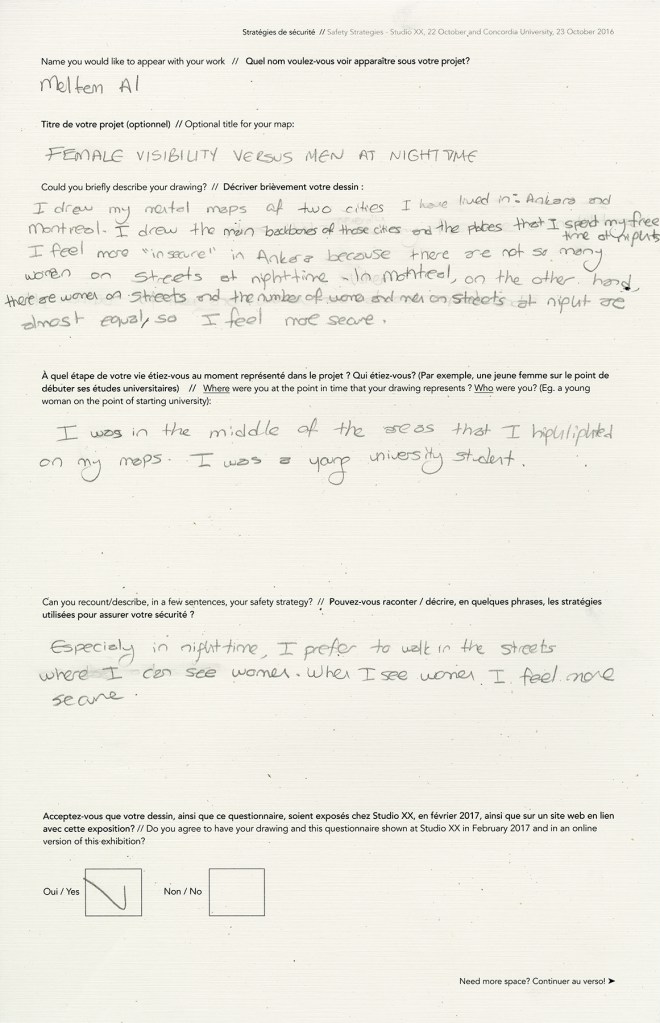 Stratégies de sécurité // Safety Strategies - Studio XX, 22 October and Concordia University, 23 October 2016
Name you would like to appear with your work // Quel nom voulez-vous voir apparaître sous votre projet?
Meltem Al
Titre de votre projet (optionnel) // Optional title for your map:
FEMALE VISIBILITY VERSUS MEN AT NIGHTTIME
Could you briefly describe your drawing? // Décriver brièvement votre dessin :
I draw my mental maps of two cities I have lived in: Ankara and
Montreal. I drew the main backbones of those cities and the places that I spend my free
time at nights
I feel more "insecure" in Ankara because there are not so many
women on streets at nighttime. In Montreal, on the other hand,
there are women on streets and the number of women and men on streets at night are
almost equal, so I feel more secure.
À quel étape de votre vie étiez-vous au moment représenté dans le projet ? Qui étiez-vous? (Par exemple, une jeune femme sur le point de
débuter ses études universitaires) // Where were you at the point in time that your drawing represents ? Who were you? (Eg. a young
woman on the point of starting university):
I was in the middle of the areas that I highlighted
on my maps. I was a young university student.
Can you recount/describe, in a few sentences, your safety strategy? // Pouvez-vous raconter / décrire, en quelques phrases, les stratégies
utilisées pour assurer votre sécurité ?
Especialy in nighttime, I prefer to walk in the streets
where I can see women. When I see women, I feel more
secure.
Acceptez-vous que votre dessin, ainsi que ce questionnaire, soient exposés chez Studio XX, en février 2017, ainsi que sur un site web en lien
avec cette exposition? // Do you agree to have your drawing and this questionnaire shown at Studio XX in February 2017 and in an online
version of this exhibition?
Oui / Yes Non / No
Need more space? Continuer au verso! ➤